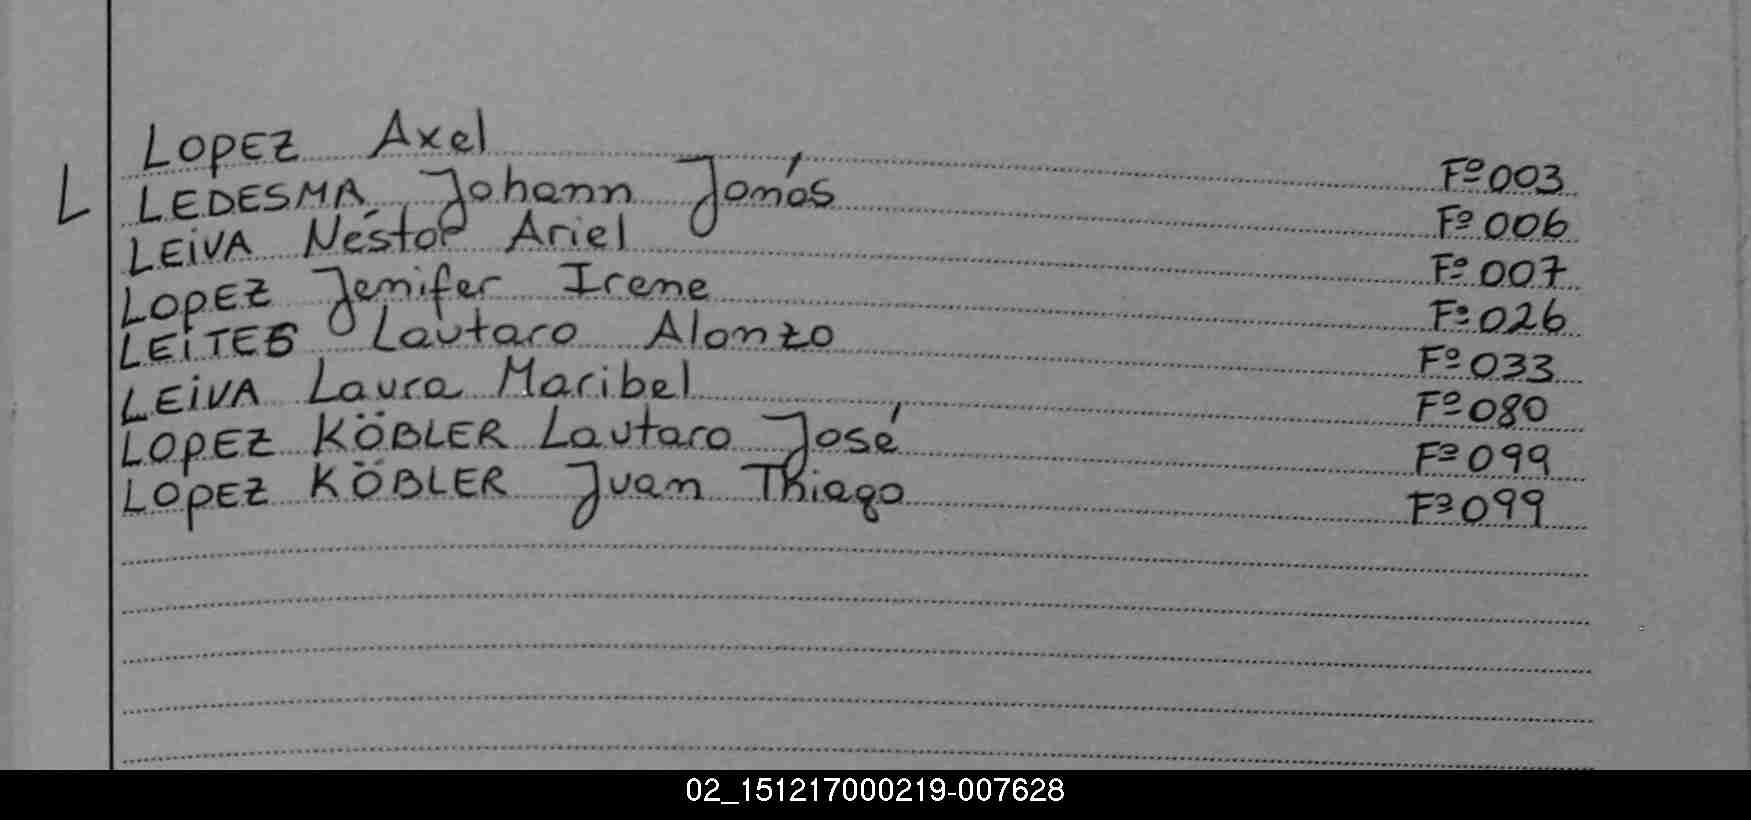 L
LOPEZ Axel Fº 003
LEDESMA, Johann Jonás Fº 006
LEiVA Néstor Ariel Fº 007
LOPEZ Jenifer Irene Fº 026
LEiTES Lautaro Alonzo Fº 033
LEiVA Laura Maribel Fº 080
LOPEZ KÖBLER Lautaro José Fº 099
LOPEZ KÖBLER Juan Thiago Fº 099
02_151217000219-007628